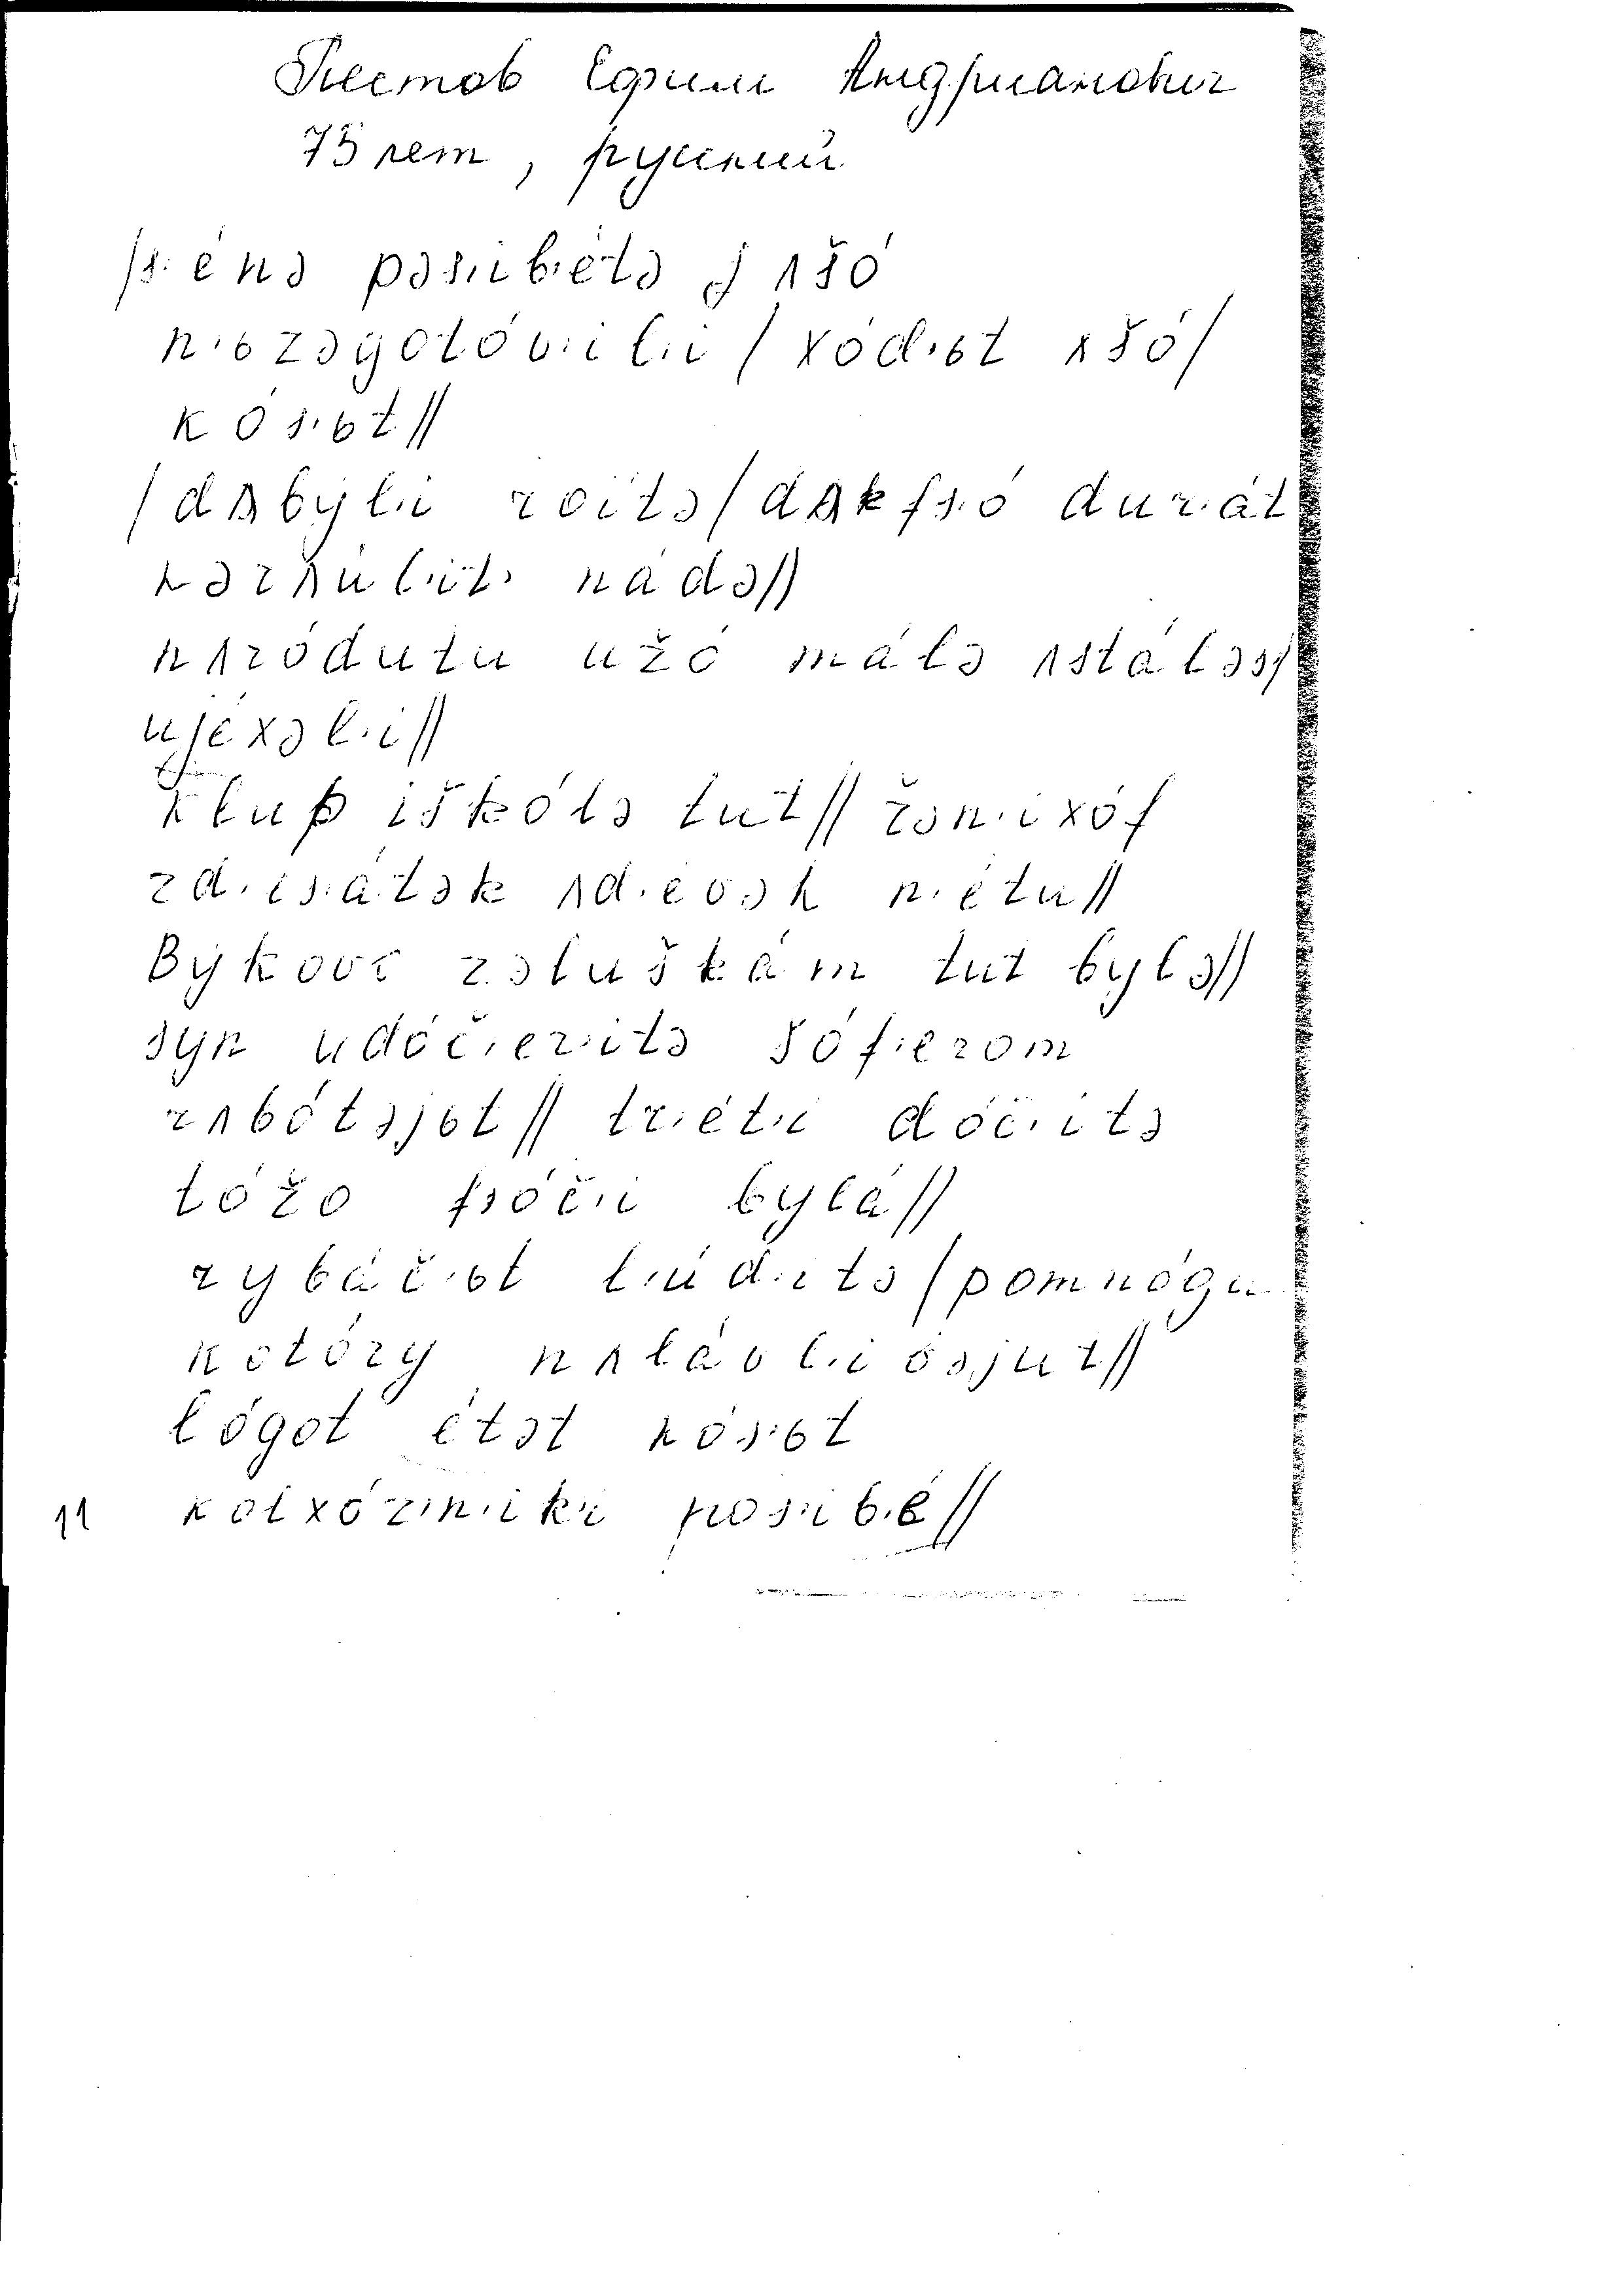 Пестов Ефим Андрианович
75 лет, русский
/s·énə pəs·ib·étə jʌšó
n·ɵzəgotóv·il·i / xód·ɵt ʌšó/
kós·ɵt//
/dʌbýl·i roitə/dʌkfs·ó dur·át
nəzʌúl·it· nádə//
nʌródutu užó málə ʌstáləs/
ujéxəl·i//
Klup iškólə tut// žən·ixóf
zd·is·átək ʌd·évək n·étu//
Býkovc zəluškám tut bylə//
syn udóč·er·itə šóf·erom
rʌbótəjɵt// tr·ét·i dóč·itə
tóžo fsóč·i bylá//
rybáč·ɵt l·úd·itə/pomnógu
kotóry nʌlávl·iósjut//
lógot étət kós·ɵt
kolxózn·ik·i pos·ib·é//
11